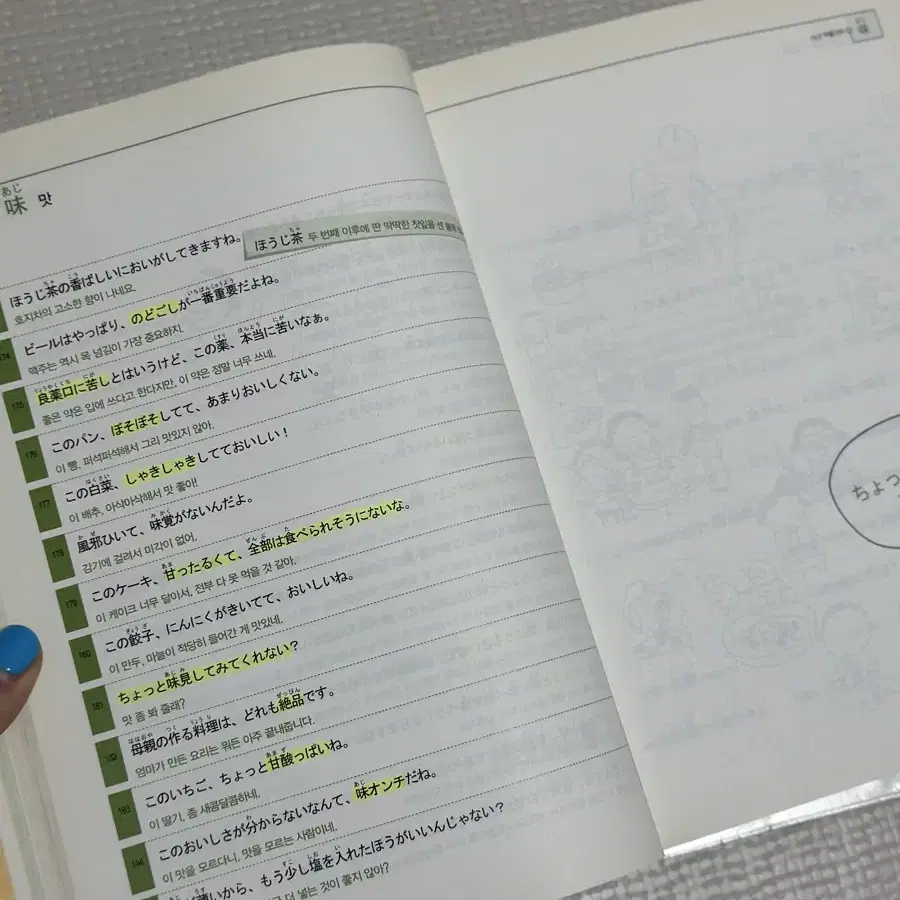 あじ
味 맛
ほうじ茶 두 번째 이후에 딴 딱딱한 찻잎을 센 불에
ちゃ
ちゃ こう
ほうじ茶の香ばしいにおいがしてきますね。
호지차의 고소한 향이 나네요.
いちばんじゅうよう
174 ビールはやっぱり、のどごしが一番重要だよね。
맥주는 역시 목 넘김이 가장 중요하지.
りょうやくくち にが くすり ほんとう にが
175 良薬口に苦しとはいうけど、この薬、本当に苦いなぁ。
좋은 약은 입에 쓰다고 한다지만, 이 약은 정말 너무 쓰네.
176 このパン、ぼそぼそしてて、あまりおいしくない。
이 빵, 퍼석퍼석해서 그리 맛있지 않아.
はくさい
177 この白菜、しゃきしゃきしてておいしい!
이 배추, 아삭아삭해서 맛 좋아!
かぜ みかく
178 風邪ひいて、味覚がないんだよ。
감기에 걸려서 미각이 없어.
あま ぜんぶ た
179 このケーキ、甘ったるくて、全部は食べられそうにないな。
이 케이크 너무 달아서, 전부 다 못 먹을 것 같아.
ぎょうざ
180 この餃子、にんにくがきいてて、おいしいね。
이 만두, 마늘이 적당히 들어간 게 맛있네.
あじみ
181 ちょっと味見してみてくれない?
맛 좀 봐 줄래?
ははおや つく りょうり ぜっぴん
182 母親の作る料理は、どれも絶品です。
엄마가 만든 요리는 뭐든 아주 끝내줍니다.
あまず
183 このいちご、ちょっと甘酸っぱいね。
이 딸기, 좀 새콤달콤하네.
わ あじ
184 このおいしさが分からないなんて、味オンチだね。
이 맛을 모르다니, 맛을 모르는 사람이네.
あじ うす すこ しお い
いから、もう少し塩を入れたほうがいいんじゃない?
더 넣는 것이 좋지 않아?
ちょっ